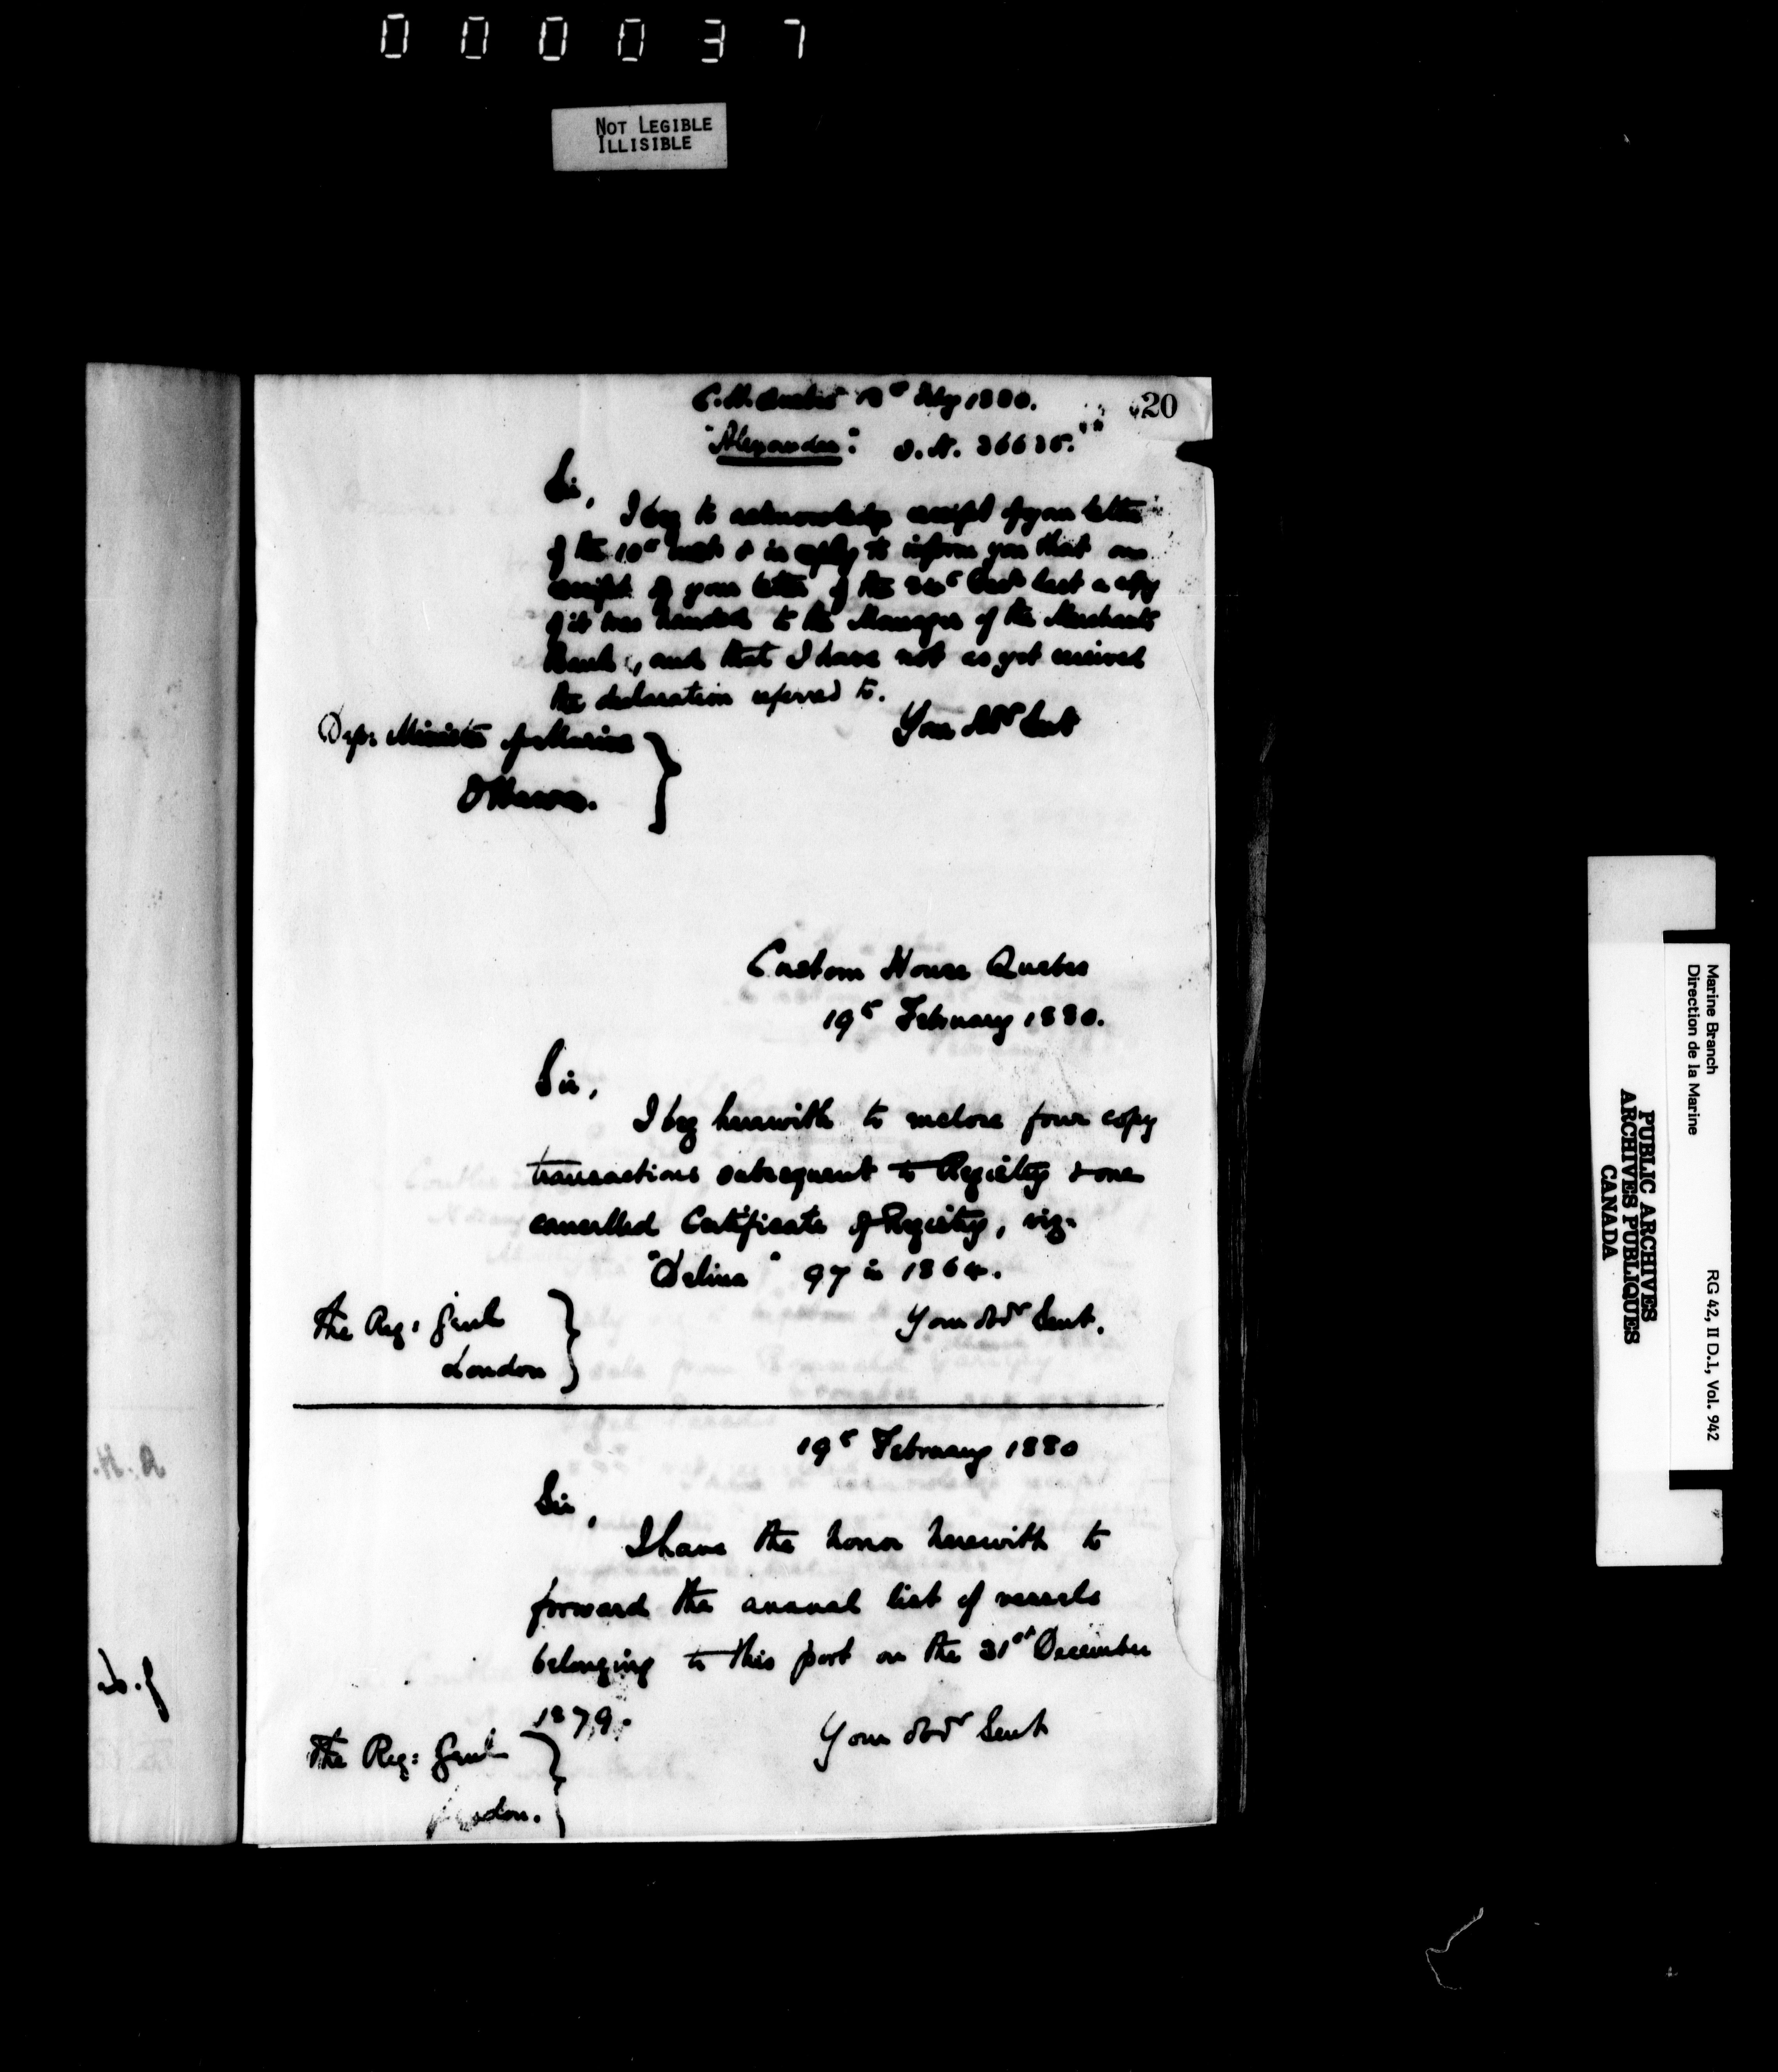 000037
NOT LEGIBLE
ILLISIBLE
20
C.H. Quebec 18th Feby 1880.
"Alexander". O.N. 36635.
Sir,
I beg to acknowledge receipt of your letter
of the 10th inst & in reply to inform you that on
receipt of your letter of the last a copy
of it was handed to the Manager of the Merchants
Bank, and that I have not as yet received
the declaration referred to.
Your Obt Servt
Dep: Minister of Marine
Ottawa.
Custom House Quebec
19th February 1880.
Sir,
I beg herewith to enclose four copy
transactions subsequent to Registry & one
cancelled Certificate of Registry, viz.
"Delina" 97 in 1864.
Your Obt Servt.
The Reg: Genl
London
19th February 1880
Sir,
I have the honor herewith to
forward the annual list of vessels
belonging to this port on the 31st December
1879.
Your Obt Servt
The Reg: Genl
London.
Marine Branch
Direction de la Marine
RG 42, II D.1, Vol. 942
PUBLIC ARCHIVES
ARCHIVES PUBLIQUES
CANADA